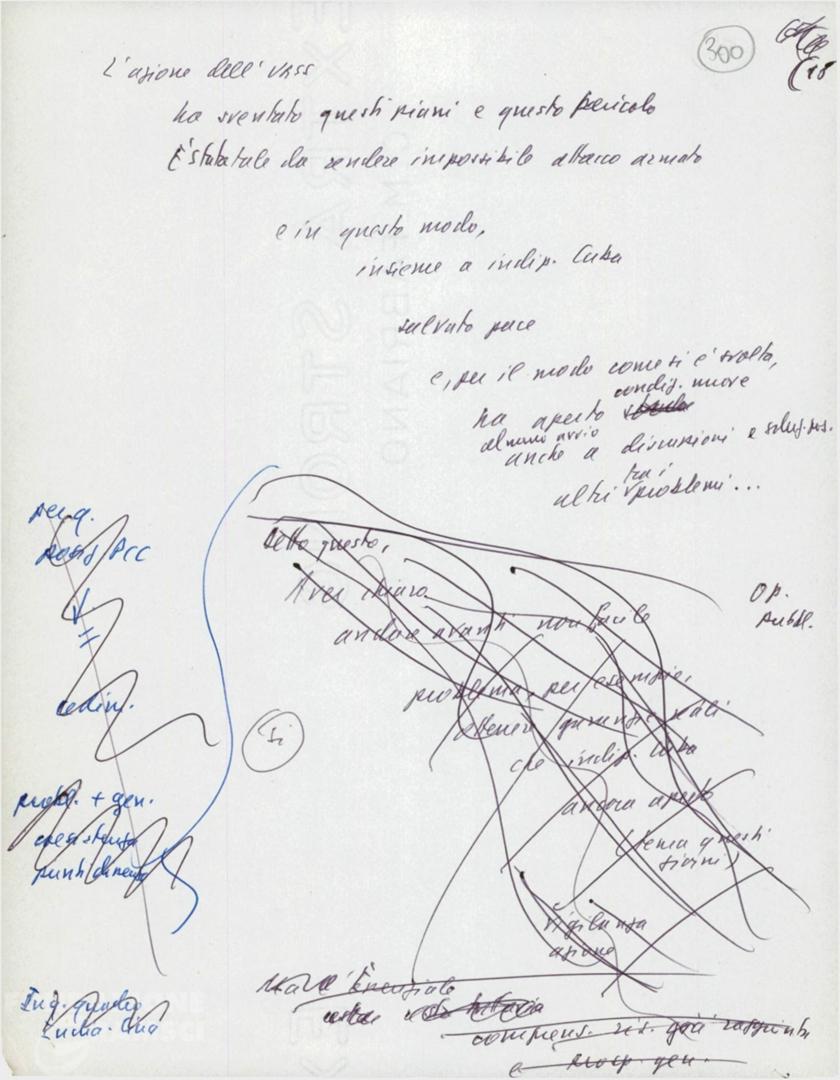 300
18
L'azione dell'URSS
ha sventato questi piani e questo pericolo
È stata tale da rendere impossibile attacco armato
e in questo modo,
insieme a indip. Cuba
salvato pace
e, per il modo come si è svolta,
condiz. nuove
ha aperto
almeno avvio
anche a discussioni e soluz. pos.
tra i
altri problemi...
Detto questo,
Aver chiaro
andare avanti non facile
problema, per esempio,
ottenere garanzie reali
che indip. Cuba
ancora aperto
(tema questi
giorni)
Vigilanza
azione
Op.
Pubbl.
Sì
perq.
posiz. PCC
cedim.
probl. + gen.
coesistenza
punti di
Ma è Essenziale
compens. ris. già raggiunti
e prosp. gen.